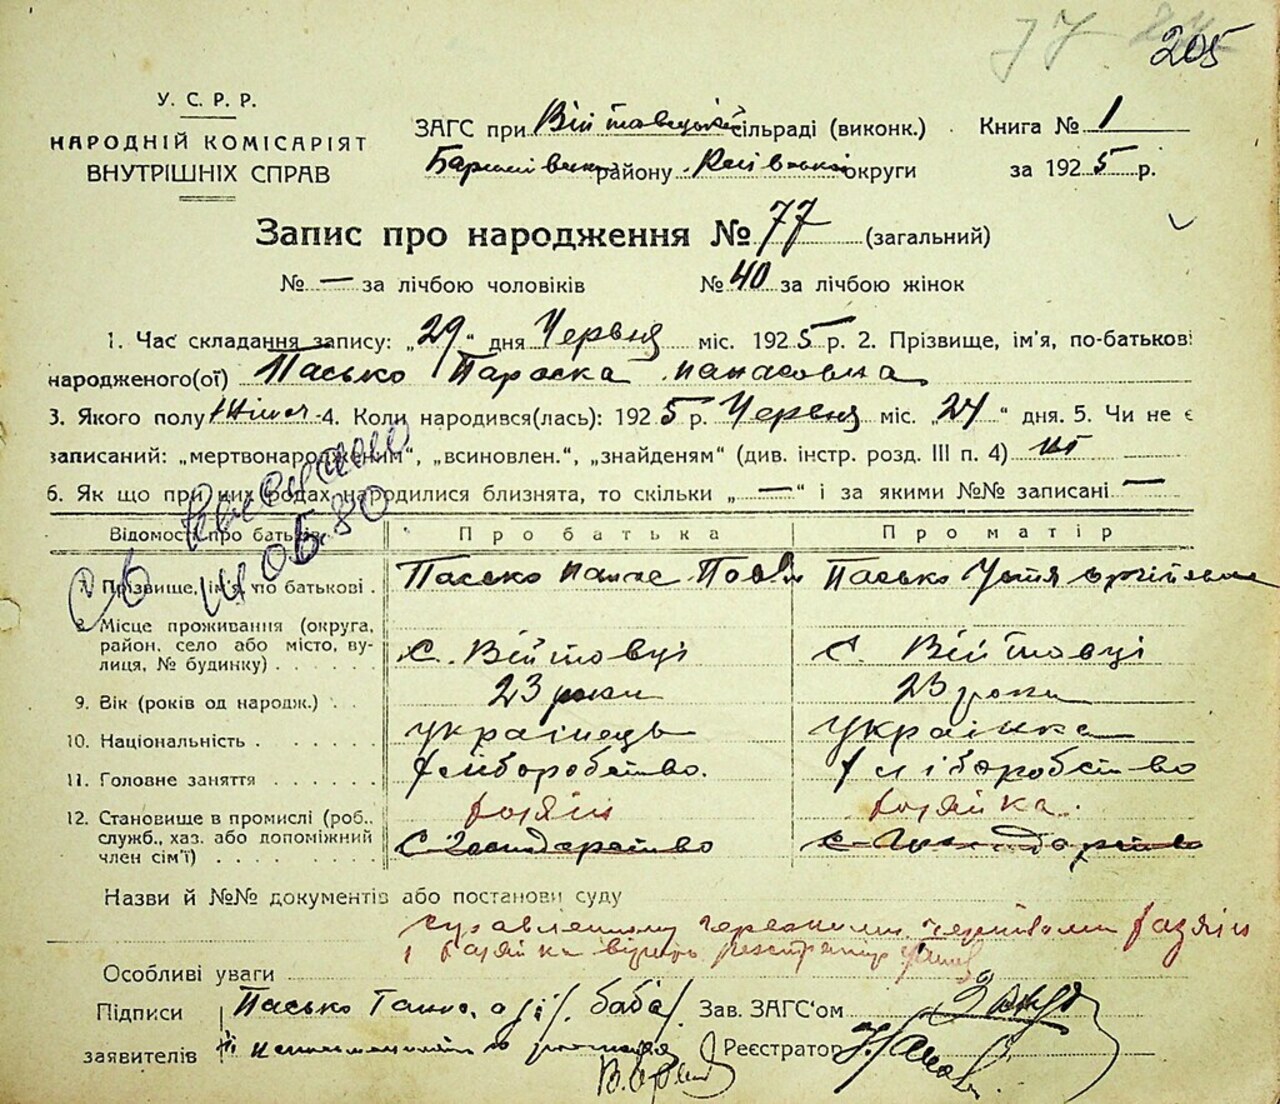 77
205
У. С. Р. Р.
НАРОДНІЙ КОМІСАРІЯТ
ВНУТРІШНІХ СПРАВ
ЗАГС при Війтовецькій сільраді (виконк.)
Книга № 1
району Київської округи
за 1925 р.
Запис про народження № 77 (загальний)
№ — за лічбою чоловіків № 40 за лічбою жінок
1. Час складання запису: „29“ дня Червня міс. 1925 р. 2. Прізвище, ім'я, по-батькові
народженого(ої) Пасько Параска Панасовна
3. Якого полу Жіноч 4. Коли народився(лась): 1925 р. Червня міс. „24“ дня. 5. Чи не є
записаний: „мертвонародженим“, „всиновлен.“, „знайденям“ (див. інстр. розд. III п. 4) ні
6. Як що при цих родах народилися близнята, то скільки „—“ і за якими №№ записані —
Відомості про батьків
Про батька
Про матір
7. Прізвище, ім'я, по батькові .
Пасько Панас
Пасько Устя
8. Місце проживання (округа, район, село або місто, вулиця, № будинку) . . . . .
с. Війтовці
с. Війтовці
9. Вік (років од народж.) . .
23 роки
23 роки
10. Національність . . . . . .
українець
українка
11. Головне заняття . . . . .
хліборобство.
хліборобство
12. Становище в промислі (роб., служб., хаз. або допоміжний член сім'ї) . . . . . . . . .
хазяїн
хазяйка.
Назви й №№ документів або постанови суду
хазяїн
і хазяйка
Особливі уваги
Підписи
заявителів
Пасько
баба
Зав. ЗАГС'ом
Реєстратор